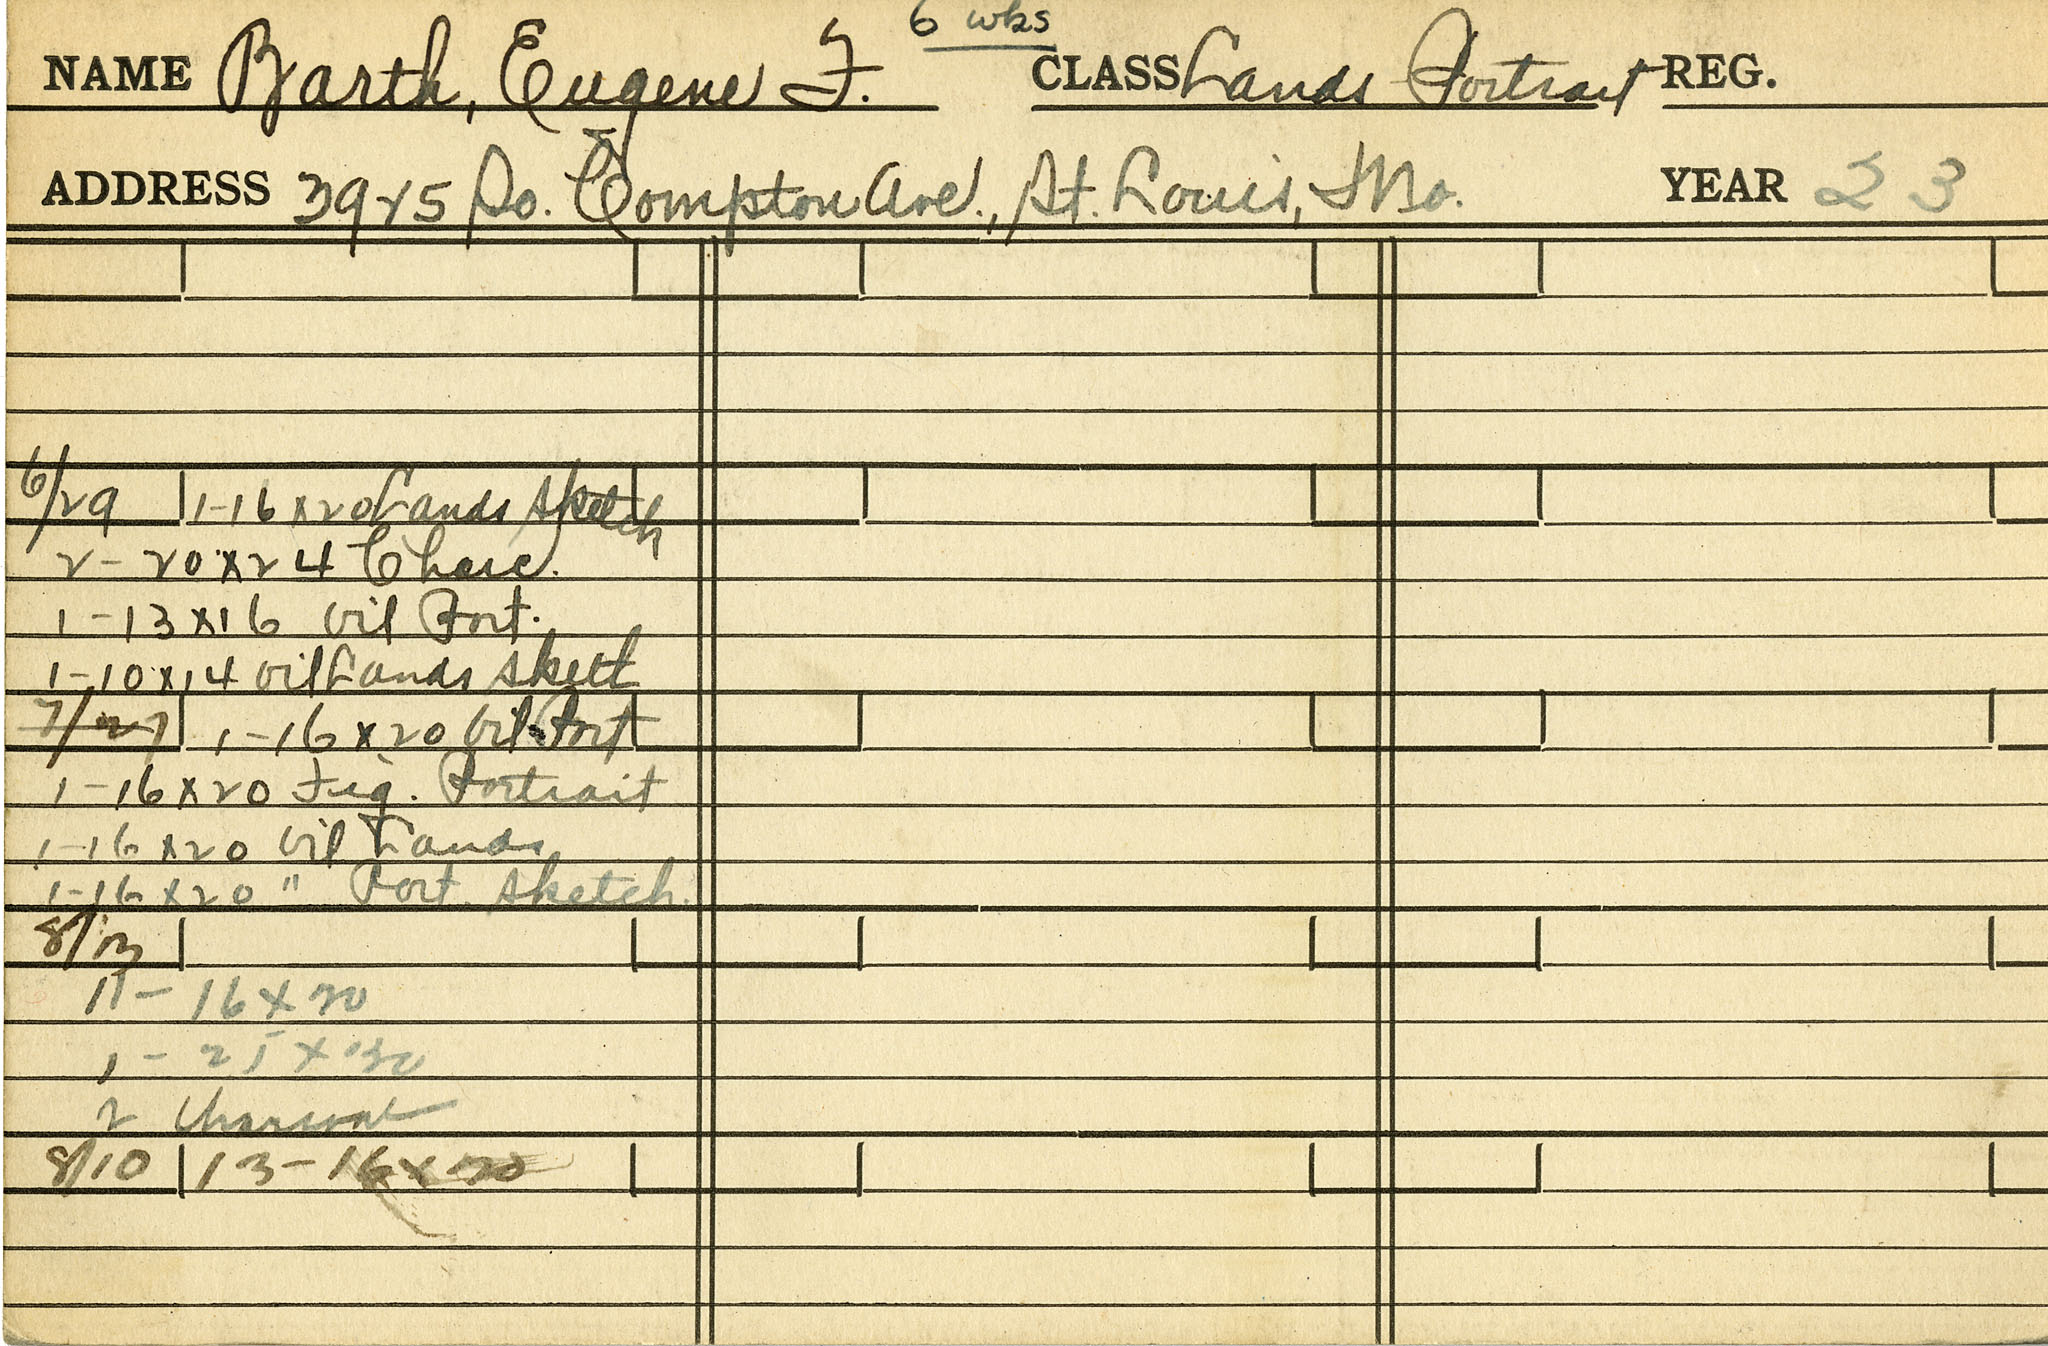 6 wks
NAME Barth, Eugene F. CLASS Lands Portrait REG.
ADDRESS 3925 So. Compton Ave., St. Louis, Mo. YEAR 23
6/29 1-16x20 Lands sketch
2-20x24 Charc.
1-13x16 oil Port.
1-10x14 oil Lands sket
7/27 1-16x20 oil Port
1-16x20 Fig. Portrait
1-16x20 oil Lands
1-16x20 " Port. sketch.
8/13
11-16x20
1-25x30
2 Charcoal
8/10 13-16x20